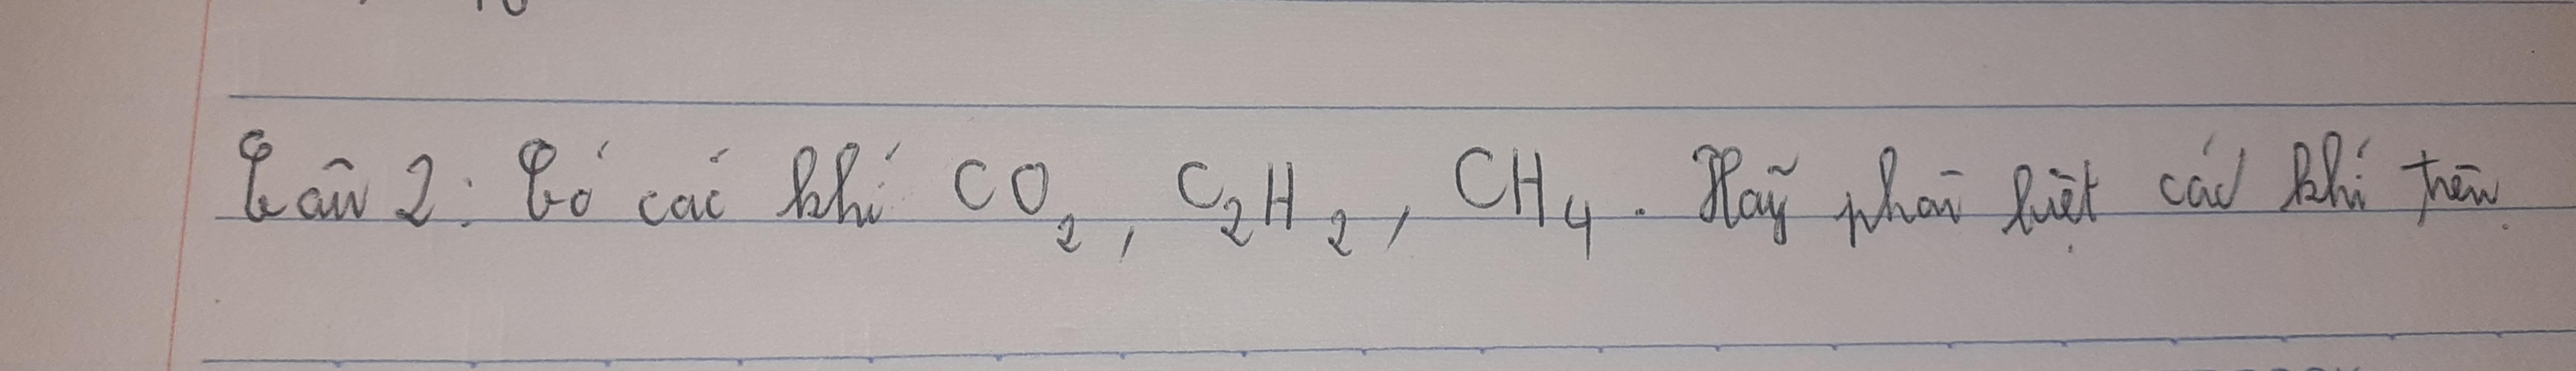 Câu 2: Có các khí CO₂, C₂H₂, CH₄. Hãy phân biệt các khí trên.